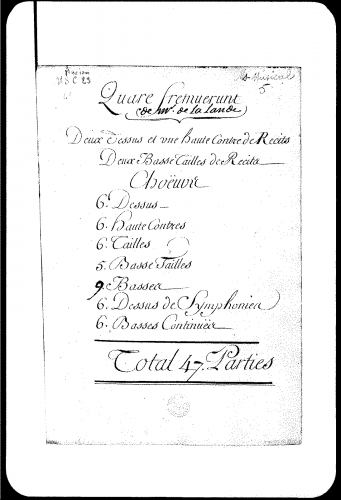 Ms Musical
5
Quare fremuerunt
de Mr. de la Lande
Deux Dessus et vne haute Contre de Recits
Deux Basse Tailles de Recits
Choëurs
6. Dessus
6. haute Contres
6. Tailles
5. Basse Tailles
9. Basses
6. Dessus de Symphonies
6. Basses Continües
Total 47. Parties